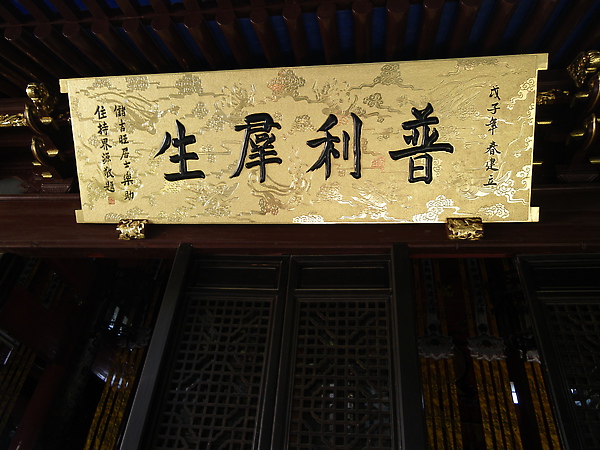 戊子年春建立
普利羣生
儲吉旺居士樂助
住持界源敬題